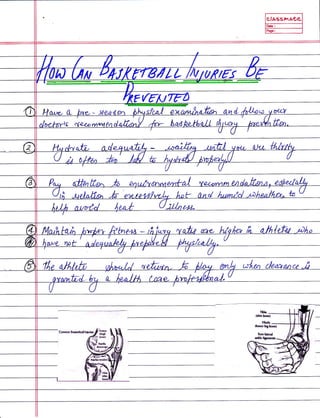 classmate
Date
Page
How Can Basketball Injuries Be
Prevented
① Have a pre-season physical examination and follow your
doctor's recommendations for basketball injury prevention.
② Hydrate adequately - waiting until you are thirsty
is often too late to hydrate properly
③ Pay attention to environmental recommendations, especially
in relation to excessively hot and humid weather, to
help avoid heat illness.
④ Maintain proper fitness - injury rates are higher in athletes who
have not adequately prepared physically.
⑤ The athlete should return to play only when clearance is
granted by a health care professional
Common Basketball Injuries
Tibia
(shin bone)
Fibula